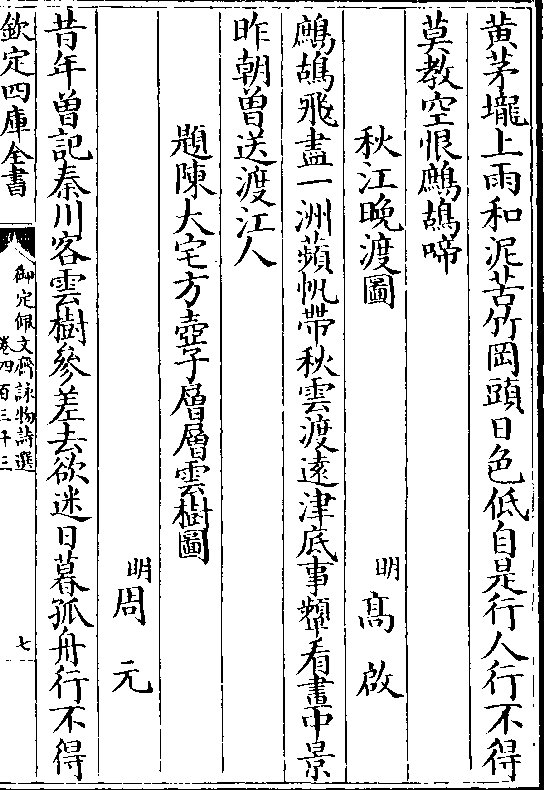 黄茅壠上雨和泥苦竹岡頭日色低自是行人行不得
莫教空恨鷓鴣啼
秋江晚渡圖
明 高啟
鷓鴣飛盡一洲蘋帆帶秋雲渡遠津底事顰看畫中景
昨朝曾送渡江人
題陳大宅方壺子層層雲樹圖
明 周元
昔年曾記秦川客雲樹參差去欲迷日暮孤舟行不得
欽定四庫全書
御定佩文齋詠物詩選
卷四百三十三
七